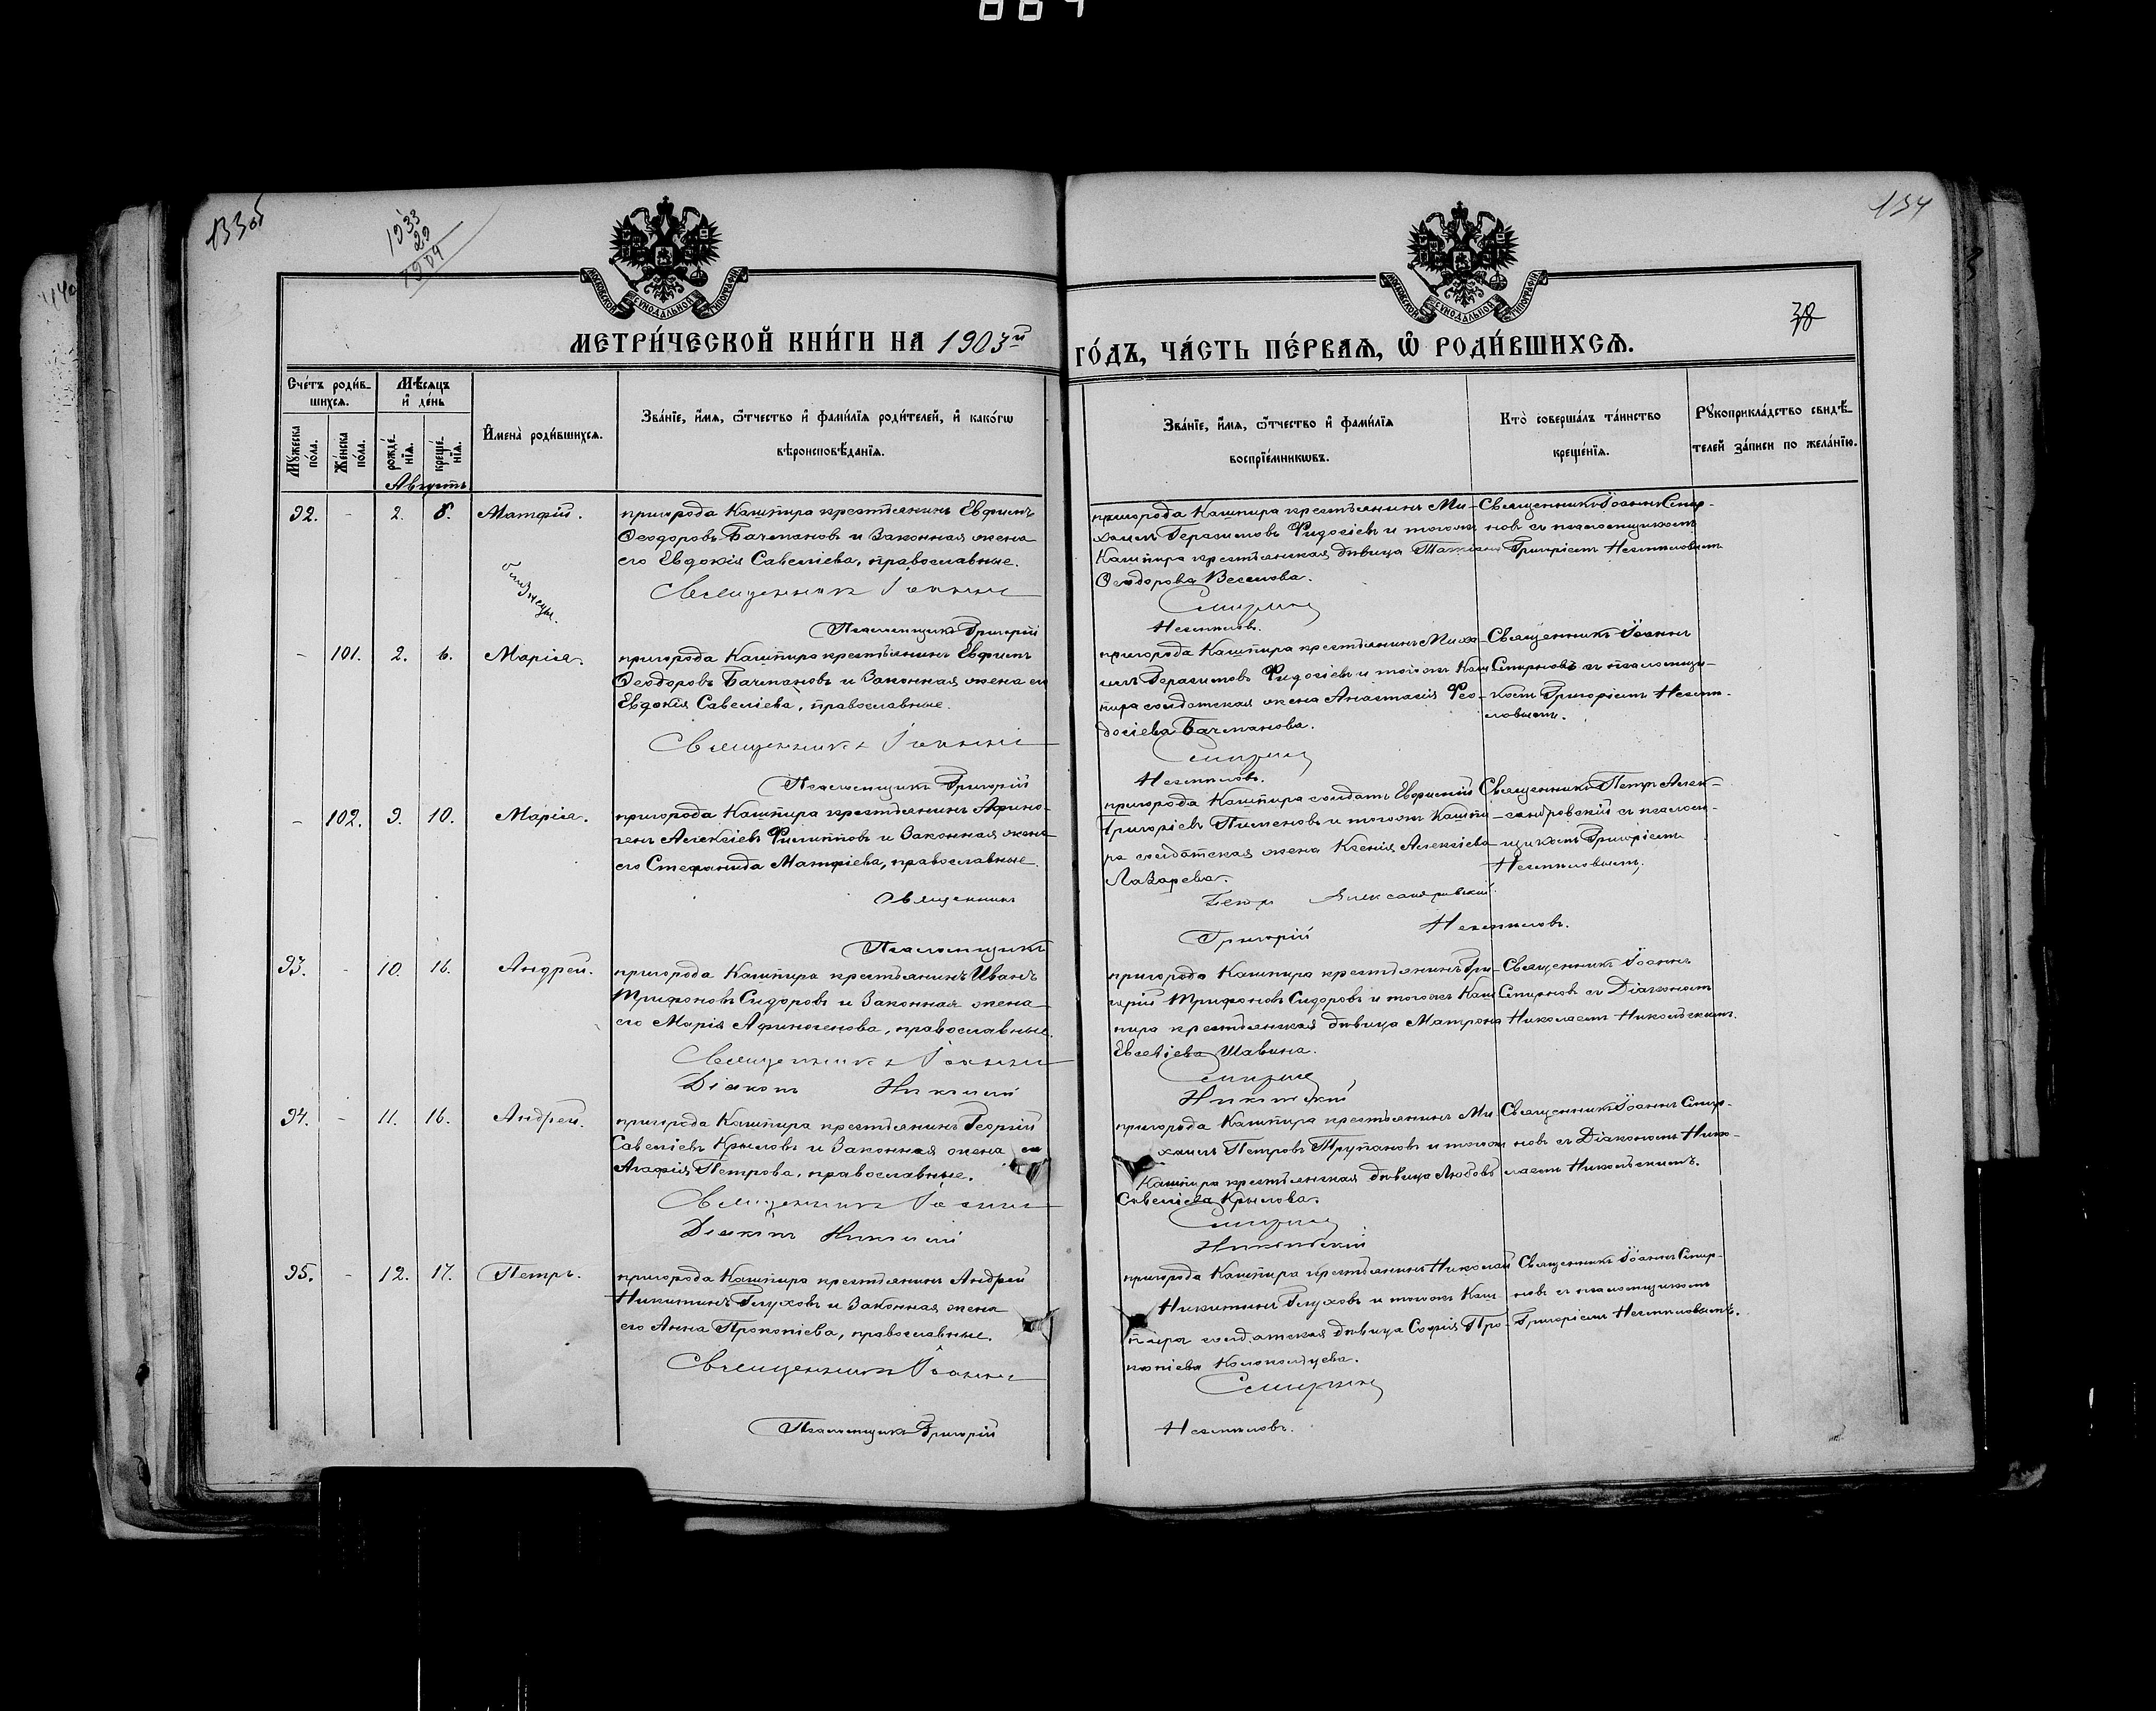 133об
134
1933
29
1904
38
МОСКОВСКОЙ СѴНОДАЛЬНОЙ ТИПОГРАФІИ
МОСКОВСКОЙ СѴНОДАЛЬНОЙ ТИПОГРАФІИ
МЕТРИ́ЧЕСКОЙ КНИ́ГИ НА 1903й ГО́ДЪ, ЧА́СТЬ ПЕ́РВАѦ, Ѽ РОДИ́ВШИХСѦ.
Сче́тъ роди́в-
шихсѧ.
Мꙋ́жеска по́ла.
Же́нска по́ла.
Мѣ́сѧцъ и҆ де́нь
рожде́-
нїѧ.
креще́-
нїѧ.
И҆мена̀ роди́вшихсѧ.
Зва́нїе, и҆́мѧ, ѻ҆́тчество и҆ фами́лїѧ роди́телей, и҆ како́гѡ
вѣроисповѣ́данїѧ.
Зва́нїе, и҆́мѧ, ѻ҆́тчество и҆ фами́лїѧ
воспрїе́мникѡвъ.
Кто̀ соверша́лъ та́инство
креще́нїѧ.
Рꙋкоприкла́дство свидѣ́-
телей за́писи по жела́нїю.
Августъ
92. - 2. 8. Матфій.
пригорода Кашпира крестьянинъ Евфимъ
Ѳеодоровъ Бачмановъ и законная жена
его Евдокія Савеліева, православные.
Священникъ Іоаннъ
Псаломщикъ Григорій
пригорода Кашпира крестьянинъ Ми-
хаилъ Герасимовъ Фидосіевъ и тогожъ
Кашпира крестьянская дѣвица Татіана
Ѳеодорова Веселова.
Смирновъ
Несмѣловъ.
Священникъ Іоаннъ Смир-
новъ съ псаломщикомъ
Григоріемъ Несмѣловымъ
близнецы.
- 101. 2. 6. Марія.
пригорода Кашпира крестьянинъ Евфимъ
Ѳеодоровъ Бачмановъ и законная жена его
Евдокія Савеліева, православные.
Священникъ Іоаннъ
Псаломщикъ Григорій
пригорода Кашпира крестьянинъ Миха-
илъ Герасимовъ Фидосіевъ и тогожъ Каш-
пира солдатская жена Анастасія Фео-
досіева Бачманова.
Смирновъ
Несмѣловъ.
Священникъ Іоаннъ
Смирновъ съ псаломщи-
комъ Григоріемъ Несмѣ-
ловымъ.
- 102. 9. 10. Марія.
пригорода Кашпира крестьянинъ Афино-
генъ Алексіевъ Филиповъ и законная жена
его Стефанида Матфіева, православные.
Священникъ
Псаломщикъ
пригорода Кашпира солдатъ Евфимій
Григоріевъ Пименовъ и тогожъ Кашпи-
ра солдатская жена Ксенія Алексіева
Лазарева.
Петръ Александровскій.
Григорій Несмѣловъ.
Священникъ Петръ Алек-
сандровскій съ псалом-
щикомъ Григоріемъ
Несмѣловымъ.
93. - 10. 16. Андрей.
пригорода Кашпира крестьянинъ Иванъ
Трифоновъ Сидоровъ и законная жена
его Марія Афиногенова, православные.
Священникъ Іоаннъ
Діаконъ Николай
пригорода Кашпира крестьянинъ Гри-
горій Трифоновъ Сидоровъ и тогожъ Каш-
пира крестьянская дѣвица Матрона
Евсевіева Шавина.
Смирновъ
Никольскій
Священникъ Іоаннъ
Смирновъ съ Діакономъ
Николаемъ Никольскимъ.
94. - 11. 16. Андрей.
пригорода Кашпира крестьянинъ Георгій
Савеліевъ Крыловъ и законная жена его
Агафія Петрова, православные.
Священникъ Іоаннъ
Діаконъ Николай
пригорода Кашпира крестьянинъ Ми-
хаилъ Петровъ Трупановъ и тогожъ
Кашпира крестьянская дѣвица Любовь
Савеліева Крылова.
Смирновъ
Никольскій
Священникъ Іоаннъ Смир-
новъ съ Діакономъ Нико-
лаемъ Никольскимъ.
95. - 12. 17. Петръ.
пригорода Кашпира крестьянинъ Андрей
Никитинъ Глуховъ и законная жена
его Анна Прокопіева, православные.
Священникъ Іоаннъ
Псаломщикъ Григорій
пригорода Кашпира крестьянинъ Николай
Никитинъ Глуховъ и тогожъ Каш-
пира солдатская дѣвица Софія Про-
копіева Колокольцева.
Смирновъ
Несмѣловъ.
Священникъ Іоаннъ Смир-
новъ съ псаломщикомъ
Григоріемъ Несмѣловымъ.